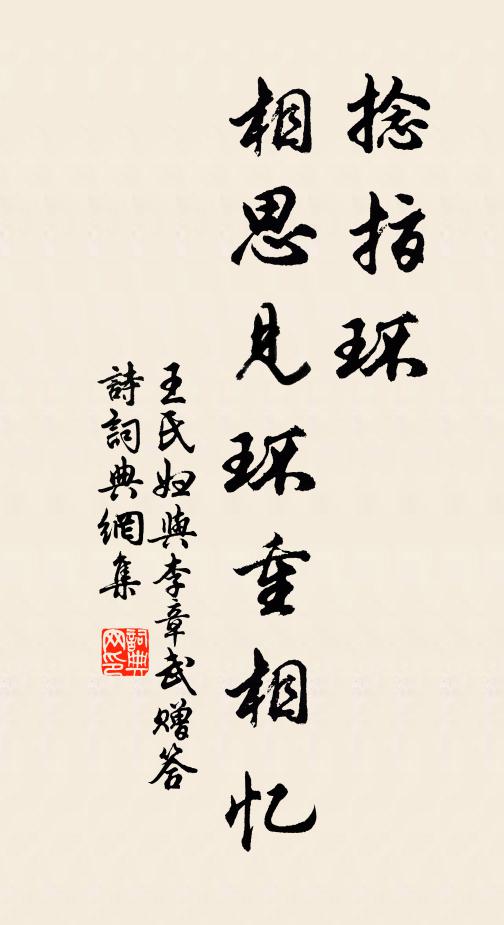 捻指环
相思见环重相忆
王氏妇與李章武赠答
詩詞典網集
詞典网印